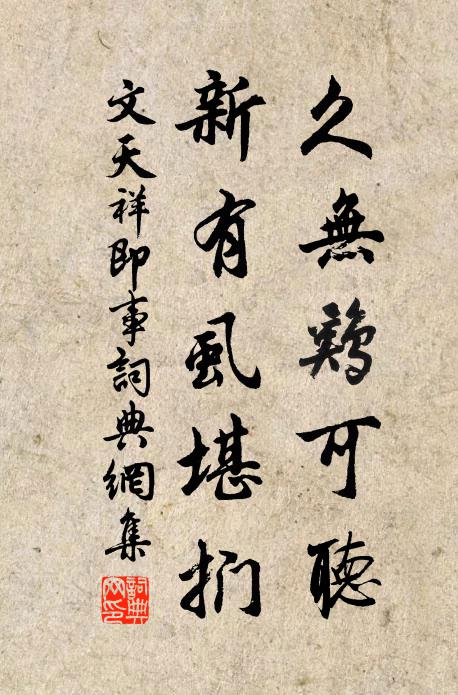 久無鷄可聽
新有虱堪捫
文天祥即事詞典網集
詞典網印